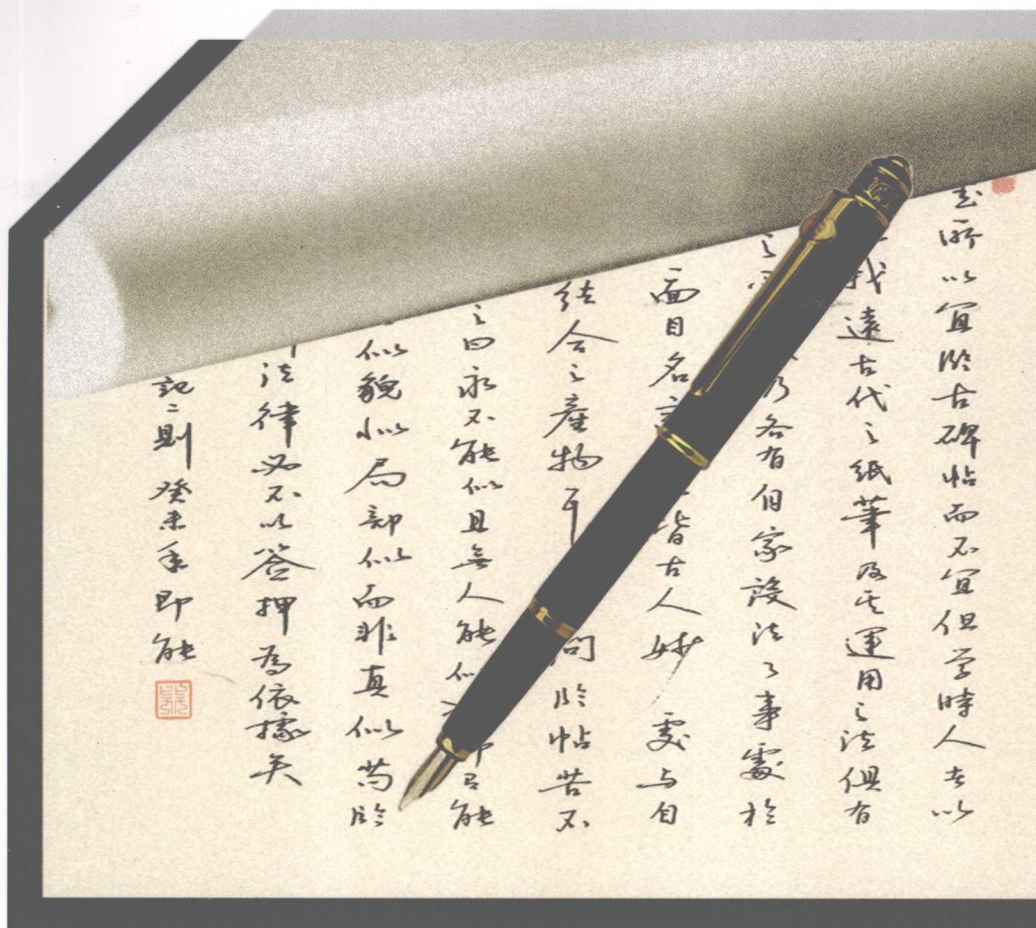 所以宜臨古碑帖而不宜但学時人者以
我遠古代之紙筆及其運用之法俱有
乃各有自家設法了事處於
面目名 皆古人妙處与自
結合之產物 問臨帖苦不
之曰永不能似且無人能似 能
似貌似局部似而非真似苟臨
法律必不以签押為依據矣
記二則 癸未 即能